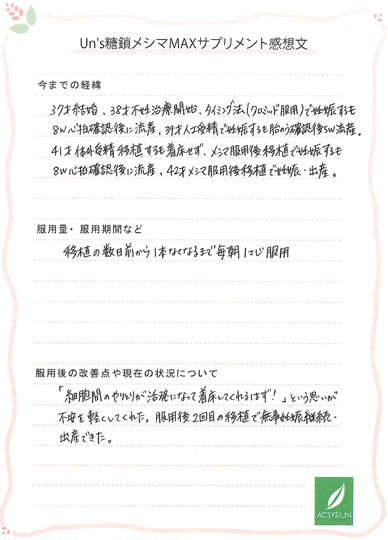 Un's糖鎖メシマMAXサプリメント感想文
今までの経緯
37才結婚、38才不妊治療開始、タイミング法(クロミッド服用)で妊娠するも
8w心拍確認後に流産、39才人工受精で妊娠するも胎のう確認後5w流産。
41才体外受精移植するも着床せず、メシマ服用後移植で妊娠するも
8w心拍確認後に流産、42才メシマ服用後移植で妊娠・出産。
服用量・服用期間など
移植の数日前から1本なくなるまで毎朝1さじ服用
服用後の改善点や現在の状況について
「細胞間のやりとりが活発になって着床してくれるはず!」という思いが
不安を軽くしてくれた。服用後2回目の移植で無事妊娠継続・
出産できた。
ACSYS UN